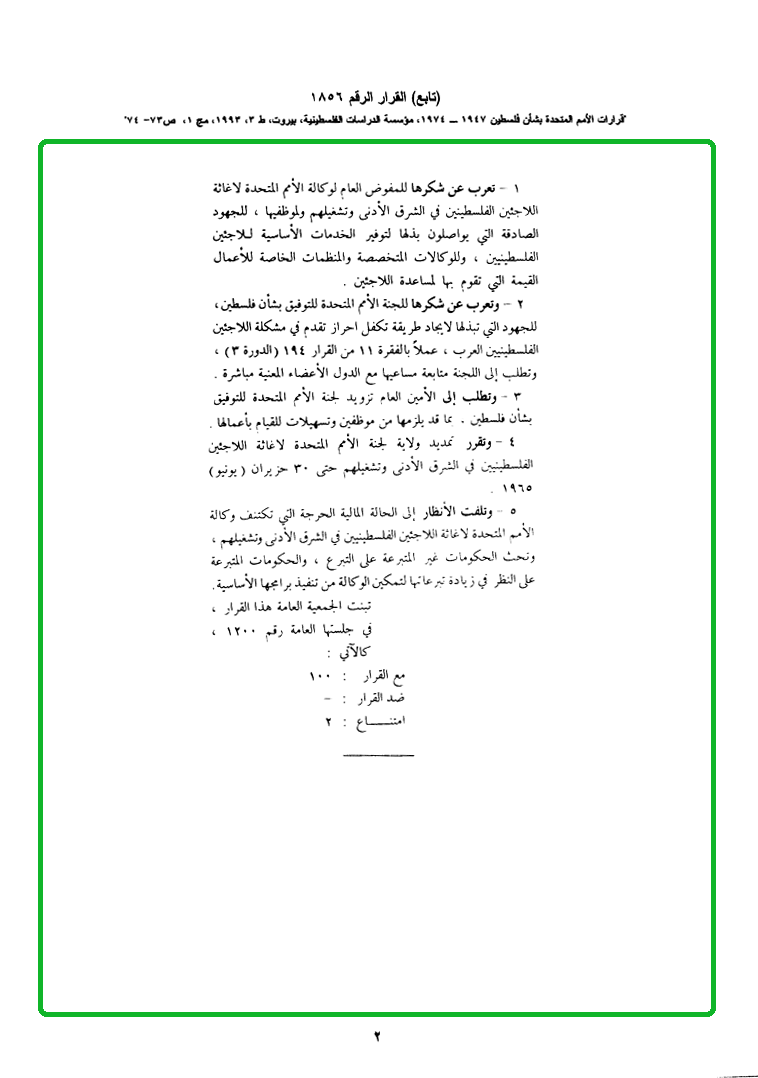 (تابع) القرار الرقم ١٨٥٦
"قرارات الأمم المتحدة بشأن فلسطين ١٩٤٧ ــ ١٩٧٤، مؤسسة الدراسات الفلسطينية، بيروت، ط ٣، ١٩٩٣، مج ١، ص٧٣- ٧٤"
١ - تعرب عن شكرها للمفوض العام لوكالة الأمم المتحدة لاغاثة
اللاجئين الفلسطينين في الشرق الأدنى وتشغيلهم ولموظفيها ، للجهود
الصادقة التي يواصلون بذلها لتوفير الخدمات الأساسية للاجئين
الفلسطينيين ، وللوكالات المتخصصة والمنظمات الخاصة للأعمال
القيمة التي تقوم بها لمساعدة اللاجئين .
٢ - وتعرب عن شكرها للجنة الأمم المتحدة للتوفيق بشأن فلسطين،
للجهود التي تبذلها لايجاد طريقة تكفل احراز تقدم في مشكلة اللاجئين
الفلسطينيين العرب ، عملاً بالفقرة ١١ من القرار ١٩٤ (الدورة ٣) ،
وتطلب إلى اللجنة متابعة مساعيها مع الدول الأعضاء المعنية مباشرة .
٣ - وتطلب إلى الأمين العام تزويد لجنة الأمم المتحدة للتوفيق
بشأن فلسطين . بما قد يلزمها من موظفين وتسهيلات للقيام بأعمالها .
٤ - وتقرر تمديد ولاية لجنة الأمم المتحدة لاغاثة اللاجئين
الفلسطينيين في الشرق الأدنى وتشغيلهم حتى ٣٠ حزيران (يونيو)
١٩٦٥ .
٥ - وتلفت الأنظار إلى الحالة المالية الحرجة التي تكتنف وكالة
الأمم المتحدة لاغاثة اللاجئين الفلسطينيين في الشرق الأدنى وتشغيلهم ،
ونحث الحكومات غير المتبرعة على التبرع ، والحكومات المتبرعة
على النظر في زيادة تبرعاتها لتمكين الوكالة من تنفيذ برامجها الأساسية.
تبنت الجمعية العامة هذا القرار ،
في جلستها العامة رقم ١٢٠٠ ،
كالآتي :
مع القرار : ١٠٠
ضد القرار : -
امتنـــــاع : ٢
٢